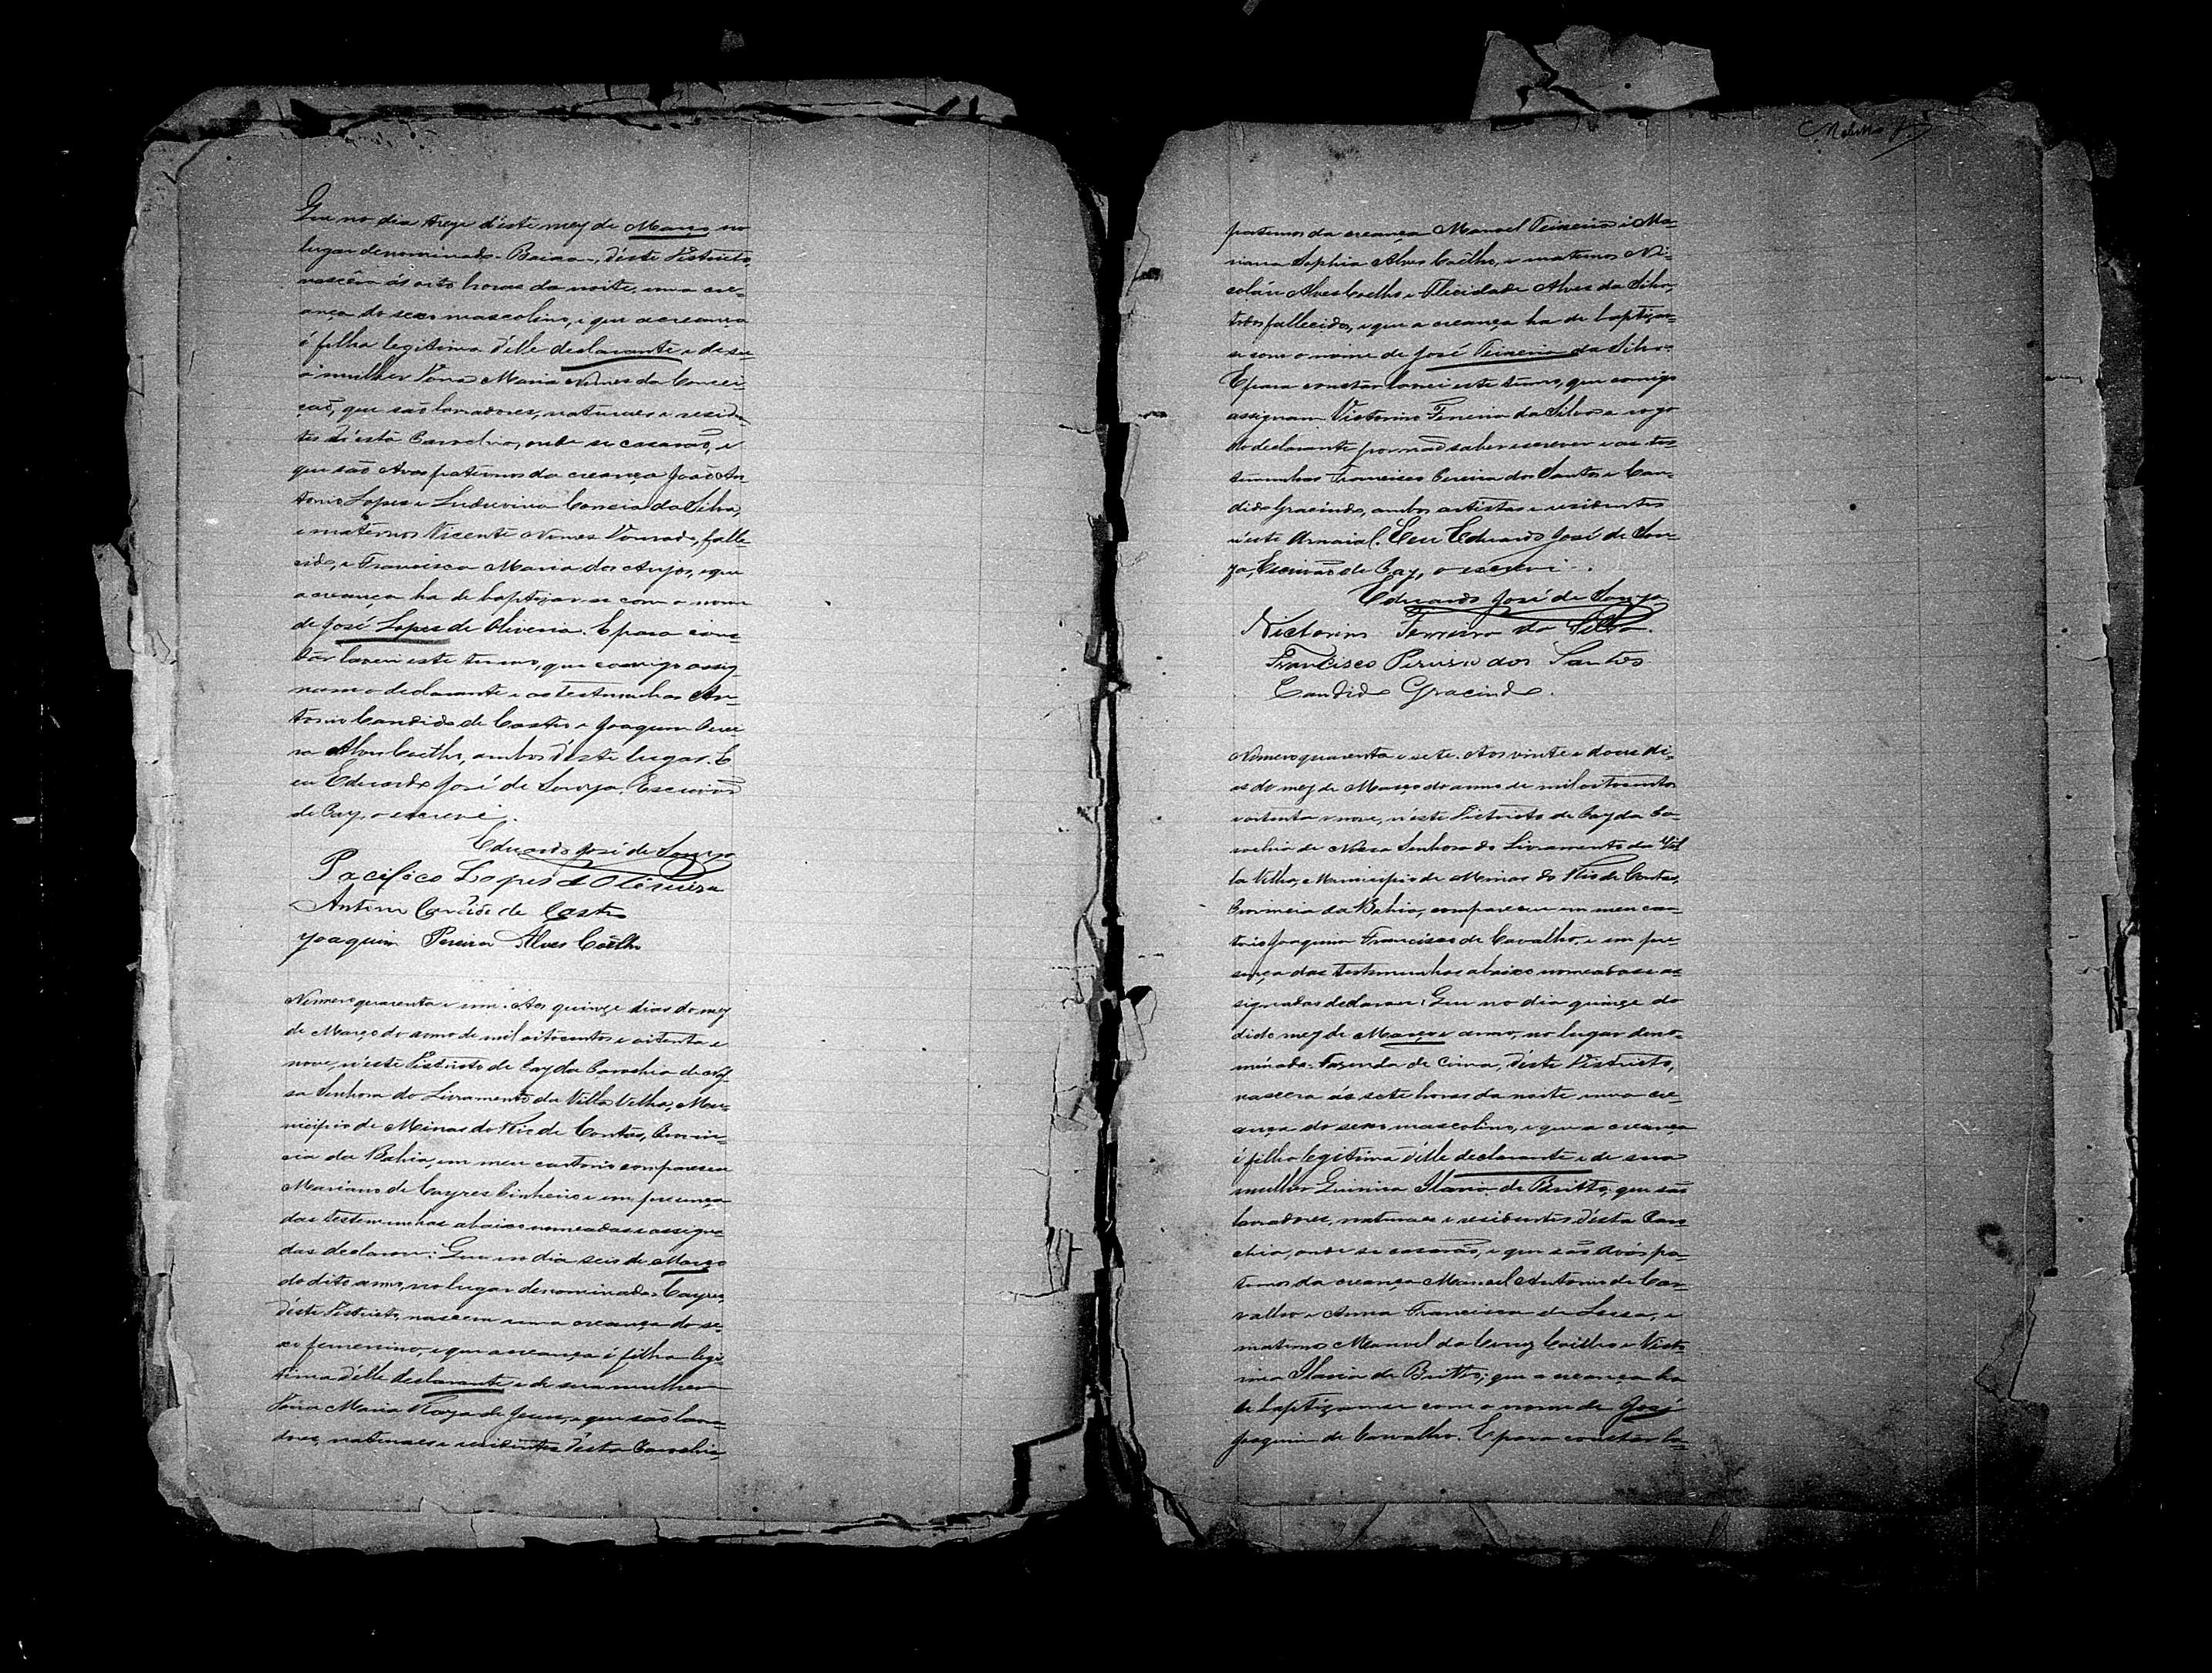 Que no dia treze d'este mez de Março no
lugar denominado Baixa, d'este Districto,
nascêra ás oito horas da noite, uma cre-
ança do sexo mascolino, e que a creança
é filha legitima d'elle declarante e de su-
a mulher Dona Maria Nunes da Concei-
ção, que são lavradores, naturaes e residen
tes d'esta Parochia, onde se casarão, e
que são Avos paternos da creança João An
tonio Lopes e Luduvina Correia da Silva,
e maternos Vicente Nunes Dourado, falle-
cido, e Francisca Maria dos Anjos, e que
a creança ha de baptizar-se com o nome
de José Lopes de Oliveira. E para cons
tar lavrei este termo, que comigo assig
nam o declarante e as testemunhas An-
tonio Candido de Castro e Joaquim Perei
ra Alves Coelho, ambos d'este lugar. E
eu Eduardo José de Souza, Escrivão
de Paz, o escrevi.
Eduardo José de Souza
Pacifico Lopes d Oliveira
Antonio Candido de Castro
Joaquim Pereira Alves Coêlho
Numero quarenta e um. Aos quinze dias do mez
de Março do anno de mil oitocentos e oitenta e
nove, n'este Districto de Paz da Parochia de Nos
sa Senhora do Livramento da Villa Velha, Mu-
nicipio de Minas do Rio de Contas, Provin-
cia da Bahia, em meu cartorio compareceu
Mariano de Cayres Pinheiro e em presença
das testemunhas abaixo nomeadas e assigna
das declarou: Que no dia seis de Março
do dito anno, no lugar denominado Cayres,
d'este Districto, nascêra uma creança do se-
xo femenino, e que a creança é filha legi-
tima d'elle declarante e de sua mulher
Dona Maria Roza de Jesus, e que são lavra
dores, naturaes e residentes d'esta Parochia,
paternos da creança Manoel Teixeira e Ma-
riana Sophia Alves Coêlho, e maternos Ni-
coláu Alves Coelho e Felicidade Alves da Silva,
todos fallecidos, e que a creança ha de baptizar-
se com o nome de José Teixeira da Silva.
E para constar lavrei este termo, que comigo
assignam Victorino Ferreira da Silva a rogo
do declarante por não saber escrever e as tes
temunhas Francisco Pereira dos Santos e Can-
dido Gracindo, ambos artistas e residentes
n'este Arraial. Eu Eduardo José de Sou-
za, Escrivão de Paz, o escrevi.
Eduardo José de Souza
Victorino Ferreira da Silva.
Francisco Pereira dos Santos
Candido Gracindo.
Numero quarenta e sete. Aos vinte e dous di-
as do mez de Março do anno de mil oitocentos
e oitenta e nove, n'este Districto de Paz da Pa-
rochia de Nossa Senhora do Livramento da Vil
la Velha, Municipio de Minas do Rio de Contas,
Provincia da Bahia, compareceu em meu car-
torio Joaquim Francisco de Carvalho, e em pre-
sença das testemunhas abaixo nomeadas e as
signadas declarou: Que no dia quinze do
dito mez de Março e anno, no lugar deno-
minado Fazenda de Cima, d'este Districto,
nascera ás sete horas da noite uma cre-
ança do sexo mascolino, e que a creança
é filha legitima d'elle declarante e de sua
mulher Maria de Britto, que são
lavradores, naturaes e residentes d'esta Paro
chia, onde se casarão, e que são Avós pa-
ternos da creança Manoel Antonio de Car-
valho e Anna Francisca de e
maternos Manoel da Cruz Coelho e Victo
rina Maria de Britto; que a creança ha
de baptizar-se com o nome de José
Joaquim de Carvalho. E para constar la-